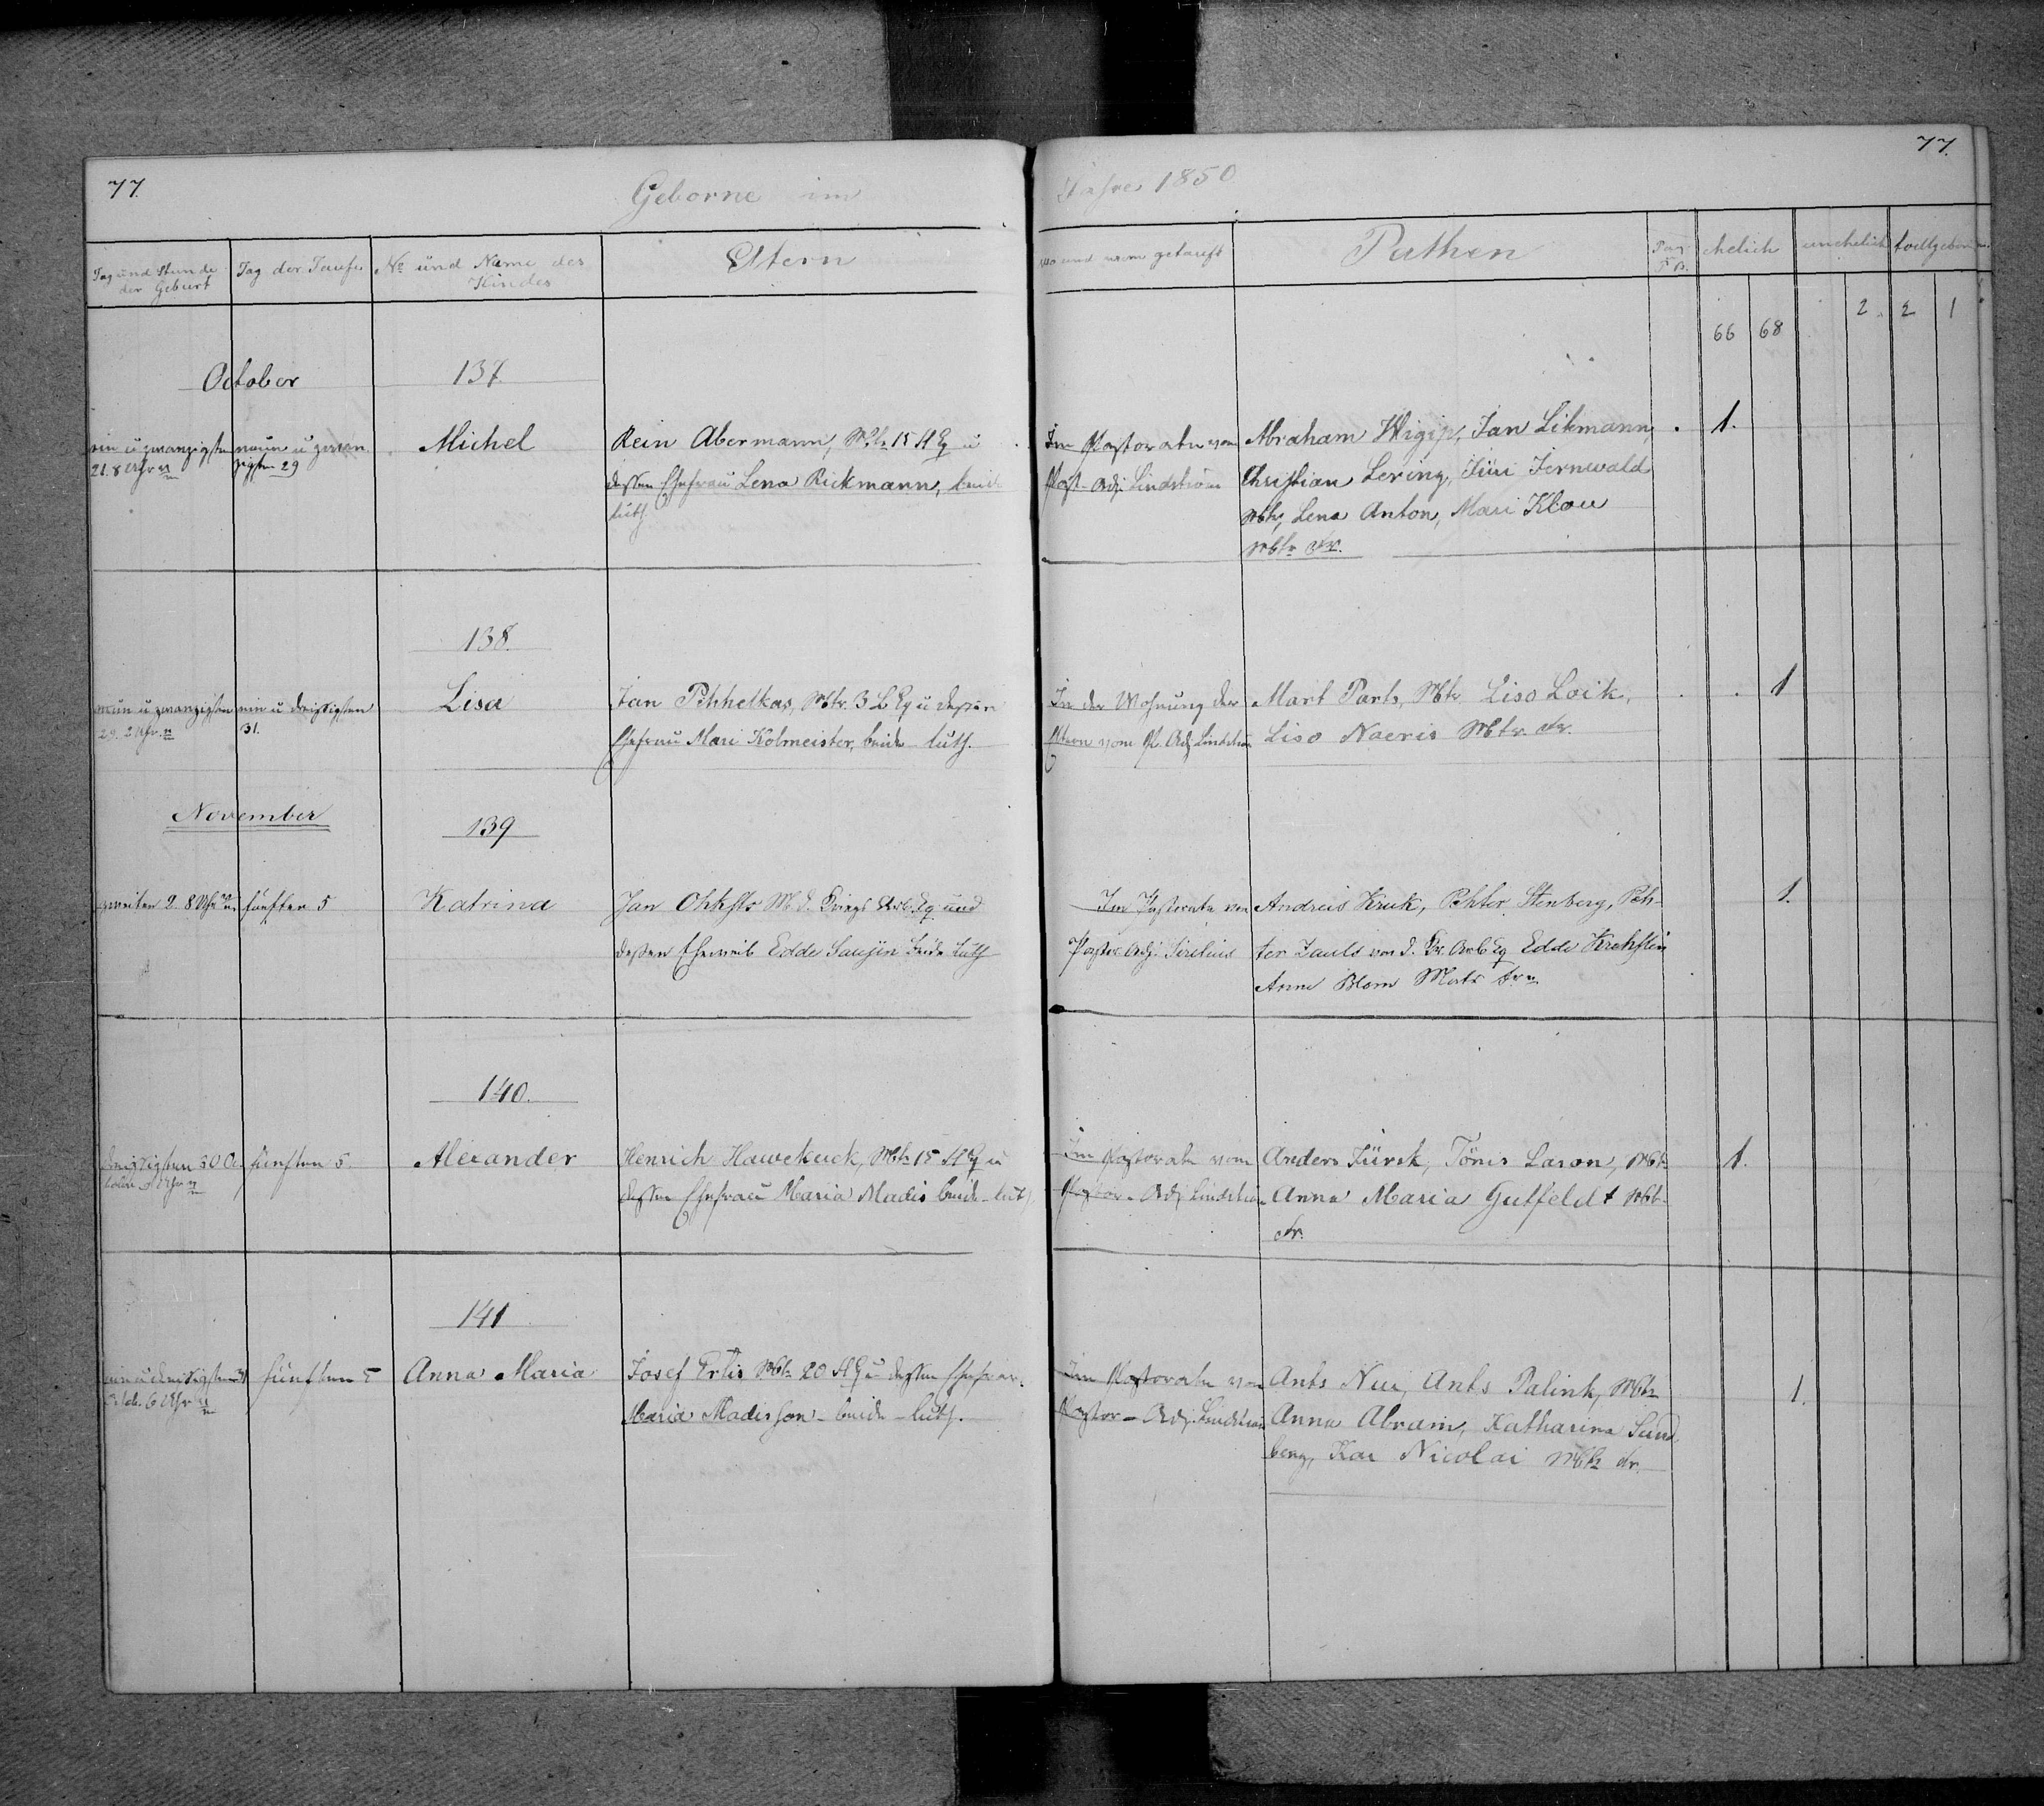 77.
Geborne im
Jahre 1850
77.
Tag und Stunde der Geburt
Tag der Taufe
No und Name des Kindes
Eltern
wo und wem getauft
Pathen
Pag.
ehelich
unehelich
todtgeboren
66 68 2 2 1
October
137.
ein u zwanzigsten
21. 8 Uhr
neun u zwan
zigsten 29
Michel
Rein Abermann, Mtr 15 A Eq u
dessen Ehefrau Lena Rickmann, beide
luth.
Im Pastorate vom
Past. Adj. Lindström
Abraham Jan Likmann,
Christian Lering, Jüri Jernwald
Mtr, Lena Anton, Mari Klau
Mtr fr.
1.
138.
neun u zwanzigsten
29. 2 Uhr
ein u dreißigsten
31.
Lisa
Jan Pihhelkas, Mtr. 3 L Eq u dessen
Ehefrau Mari Kolmeister, beide luth.
In der Wohnung der
Eltern vom P. Adj. Lindström
Mart Parts, Mtr Liso Loik,
Liso Naeris Mtr. fr.
1
November
139
zweiten 2. 8 Uhr
fünften 5
Katrina
Jan Ohksts M. d. Kriegs Arb. Eq und
dessen Eheweib Edde Saujin beide Luth
Im Pastorate von
Pastor Adj. Sirelius
Andreis Kruk, Pehter Stenberg, Peh-
ter Zauls von d. Kr. Arb Eq Edde Krehslin
Anne Blom Matr fr.
1.
140.
dreißigsten 30 O
fünften 5.
Alexander
Henrich Hawekuck, Mtr 15 A Eq u
dessen Ehefrau Maria Madis beide luth.
Im Pastorate vom
Pastor-Adj Lindström
Anders Jürsk, Tönis Lason, Mtr
Anna Maria Gutfeldt Mtr
fr.
1.
141
ein u dreißigsten 31
Octob. 6 Uhr
fünften 5
Anna Maria
Josef Ertis Mtr 20 A Eq u dessen Ehefrau
Maria Madisson beide luth.
Im Pastorate von
Pastor-Adj. Lindström
Ants Nui, Ants Palink, Mtr
Anna Abram, Katharina Sund
berg, Kai Nicolai Mtr fr.
1.